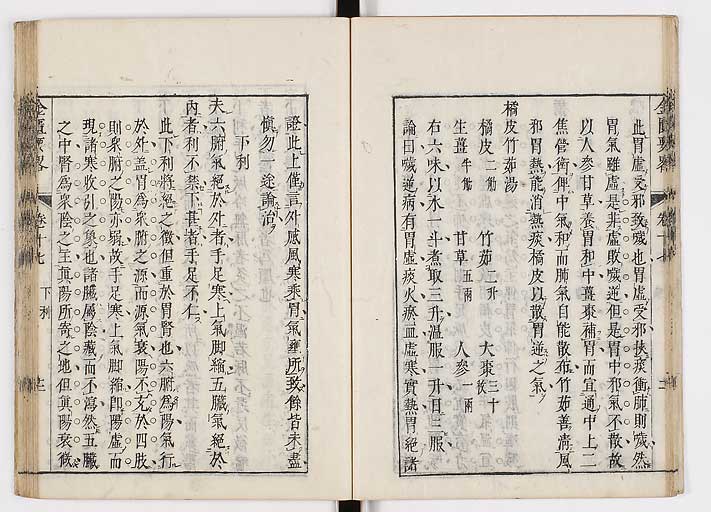 此胃虛受邪致噦也胃虛受邪挾痰衝肺則噦然
胃氣雖虛是非虛敗噦逆但是胃中邪氣不散故
以人參甘草養胃和中薑棗補胃而宣通中上二
焦營衛俾中氣和而肺氣自能散布竹茹善清風
邪胃熱能消熱痰橘皮以散胃逆之氣
橘皮竹茹湯
橘皮二觔 竹茹二升 大棗三十枚
生薑半觔 甘草五兩 人參一兩
右六味以水一斗煮取三升溫服一升日三服
論曰噦逆病有胃虛痰火瘀血虛寒實熱胃絕諸
金匱要略 卷十七
證此上僅言外感風寒乘胃氣壅所致餘皆未盡
愼勿一途論治
下利
夫六腑氣絕於外者手足寒上氣脚縮五臟氣絕於
內者利不禁下甚者手足不仁
此下利將絕之徵但重於胃腎也六腑爲陽氣行
於外蓋胃爲衆腑之源而源氣衰陽不支於四肢
則衆腑之陽亦弱故手足寒上氣脚縮卽陽虛而
現諸寒收引之象也諸臟屬陰藏而不瀉然五臟
之中腎爲衆陰之主眞陽所寄之地但眞陽衰微
金匱要略 卷十七 下利